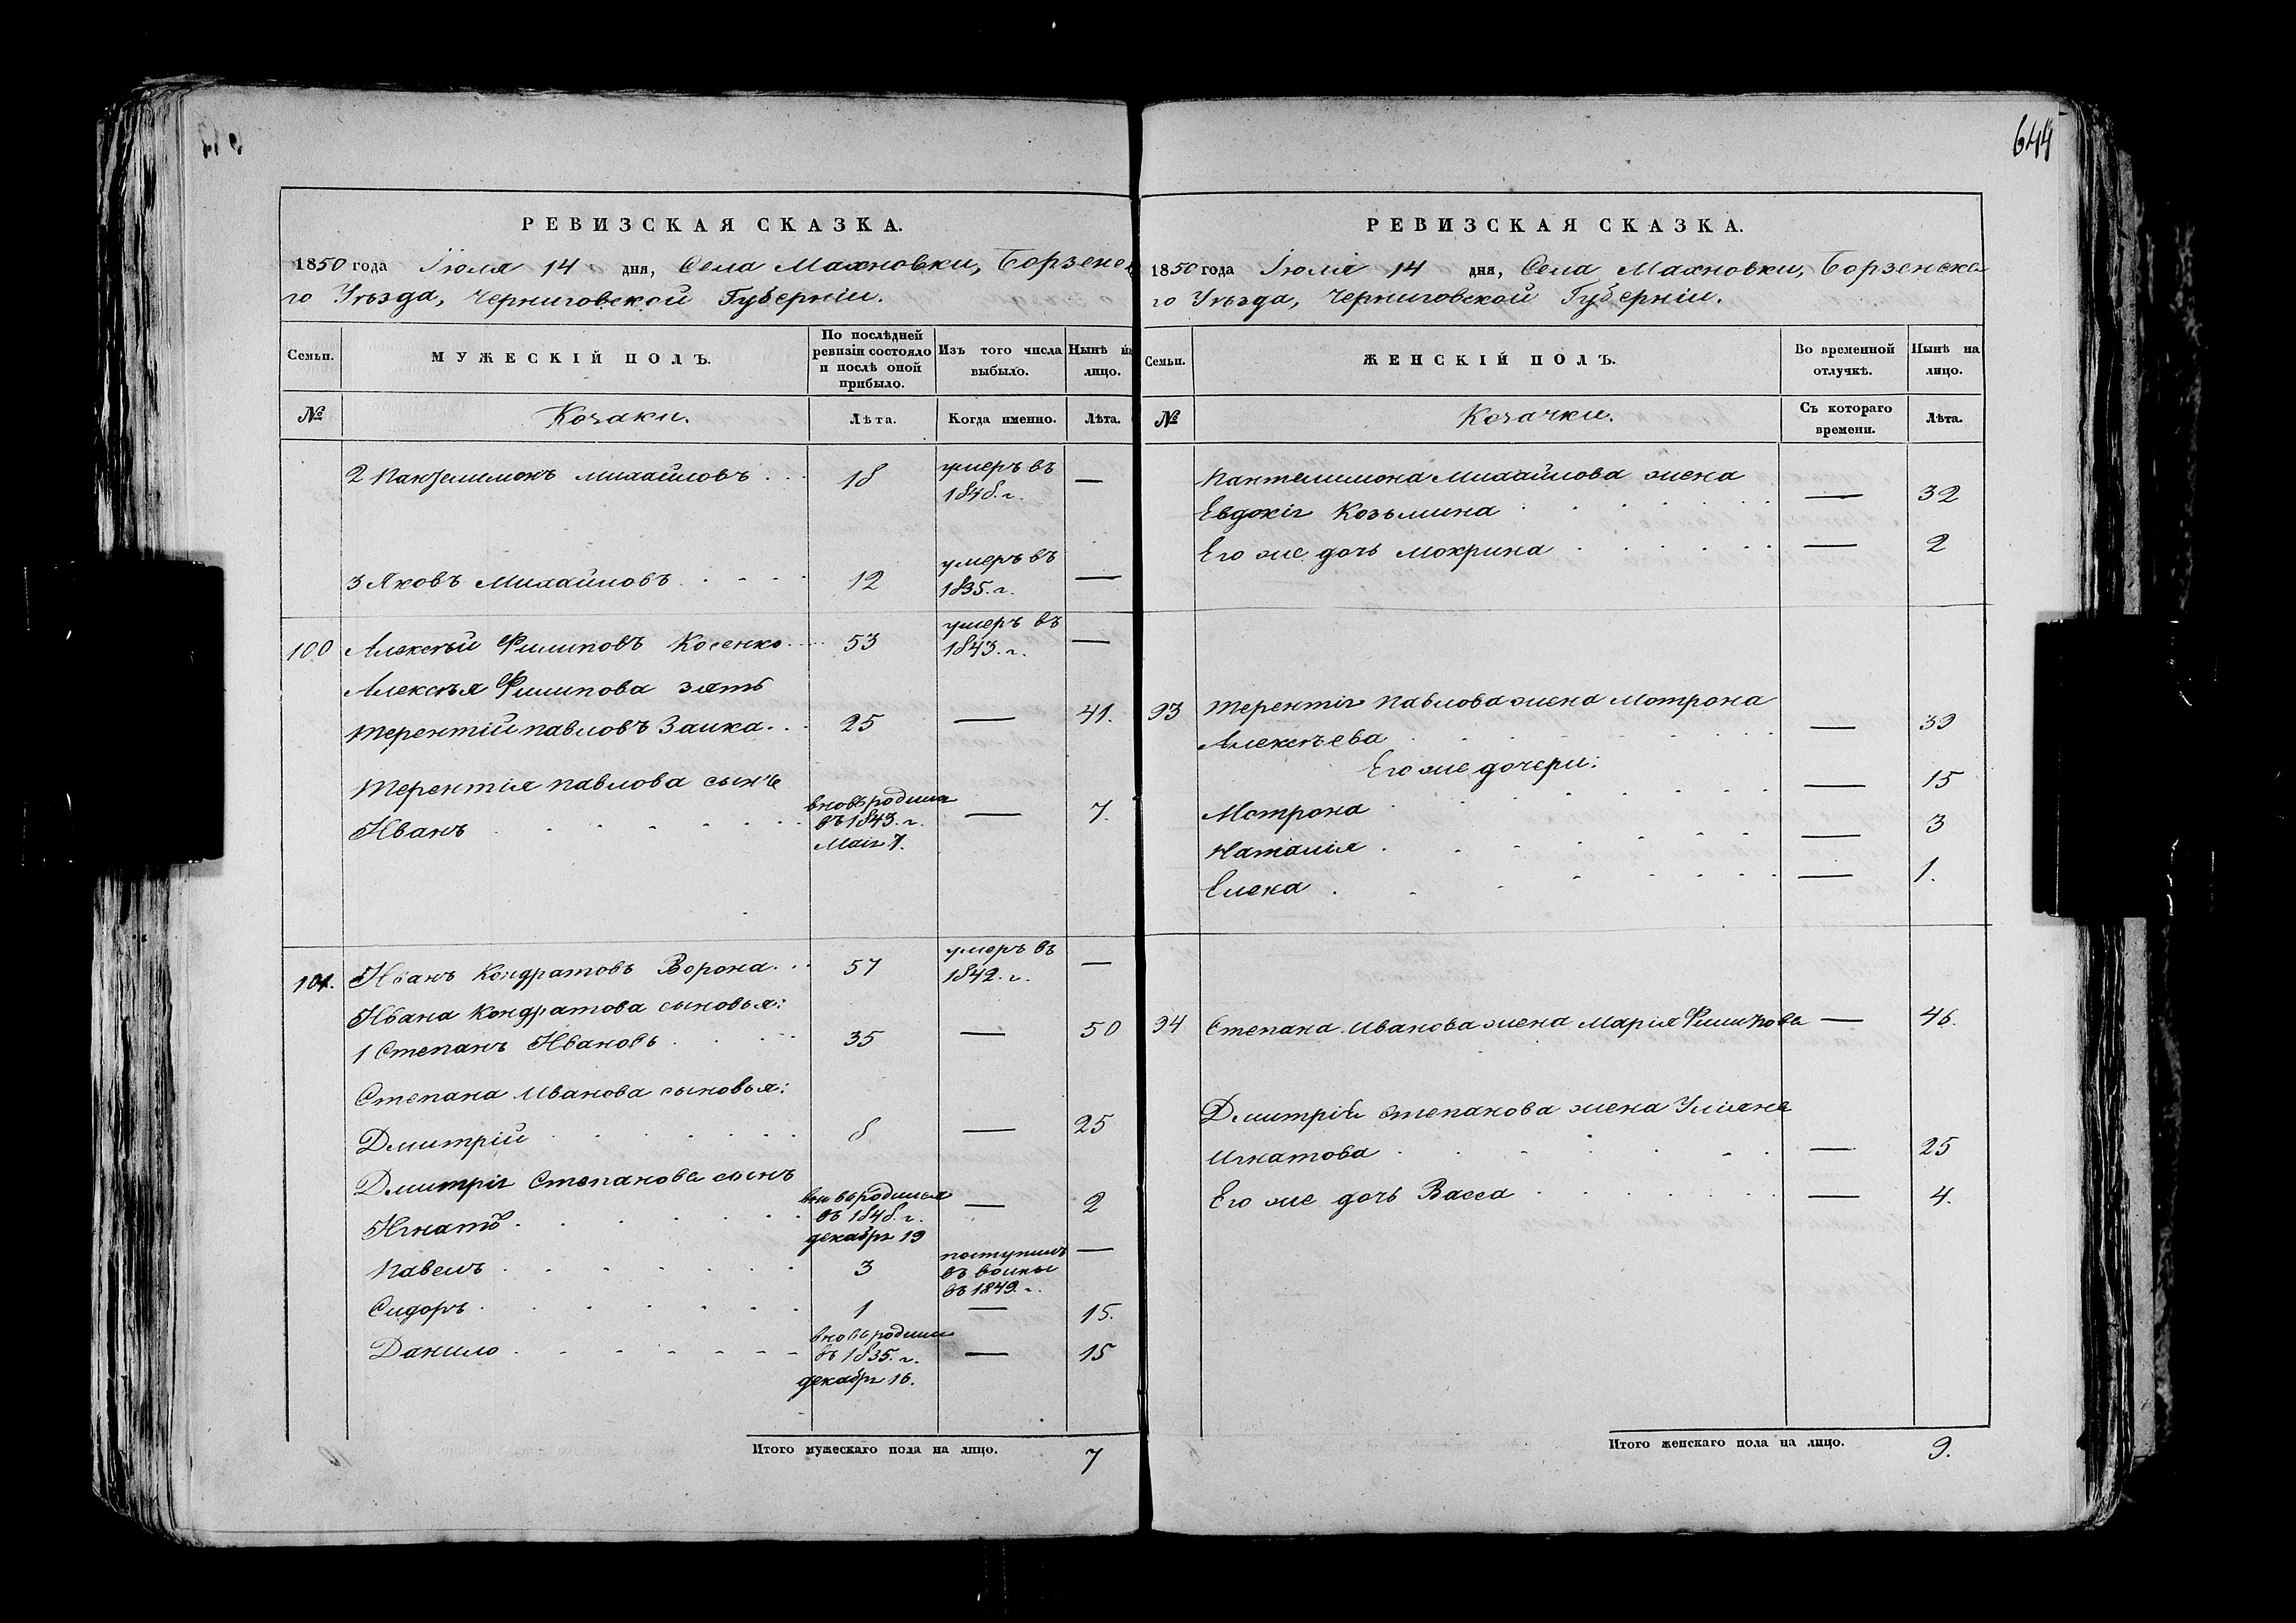 РЕВИЗСКАЯ СКАЗКА.
1850 года Іюля 14 дня, Села Махновки, Борзенс
го Уѣзда, Черниговской Губерніи.
Семьи.
МУЖЕСКІЙ ПОЛЪ.
По послѣдней ревизіи состояло и послѣ оной прибыло.
Изъ того числа выбыло.
Нынѣ на лицо.
№
Козаки.
Лѣта.
Когда именно.
Лѣта.
2 Пантелимонъ Михайловъ 18 умеръ въ 1848. г. —
3 Яковъ Михайловъ 12 умеръ въ 1835. г. —
100 Алексѣй Филиповъ Косенко 53 умеръ въ 1843. г. —
Алексѣя Филипова зять
Терентій Павловъ Заика 25 — 41.
Терентія Павлова сынъ
Иванъ вновь родился въ 1843. г. Маія 7. — 7.
101. Иванъ Кондратовъ Ворона 57 умеръ въ 1842. г. —
Ивана Кондратова сыновья:
1 Степанъ Ивановъ 35 — 50
Степана Иванова сыновья:
Дмитрій 8 — 25
Дмитрія Степанова сынъ
Игнатъ вновь родился въ 1848. г. декабря 19 — 2
Павелъ 3 поступилъ въ воины въ 1849. г. —
Сидоръ 1 — 15.
Данило вновь родился въ 1835. г. декабря 16. — 15
Итого мужескаго пола на лицо. 7
644
РЕВИЗСКАЯ СКАЗКА.
1850 года Іюля 14 дня, Села Махновки, Борзенска
го Уѣзда, Черниговской Губерніи.
Семьи.
ЖЕНСКІЙ ПОЛЪ.
Во временной отлучкѣ.
Нынѣ на лицо.
№
Козачки.
Съ котораго времени.
Лѣта.
Пантелимона Михайлова жена
Евдокія Козьмина — 32
Его же дочь Мокрина — 2
93 Терентія Павлова жена Мотрона
Алексѣева — 39
Его же дочери:
Мотрона — 15
Наталія — 3
Елена — 1.
94 Степана Иванова жена Марія Филипова — 46.
Дмитрій Степанова жена Уліяна
Игнатова — 25
Его же дочь Васса — 4.
Итого женскаго пола на лицо. 9.